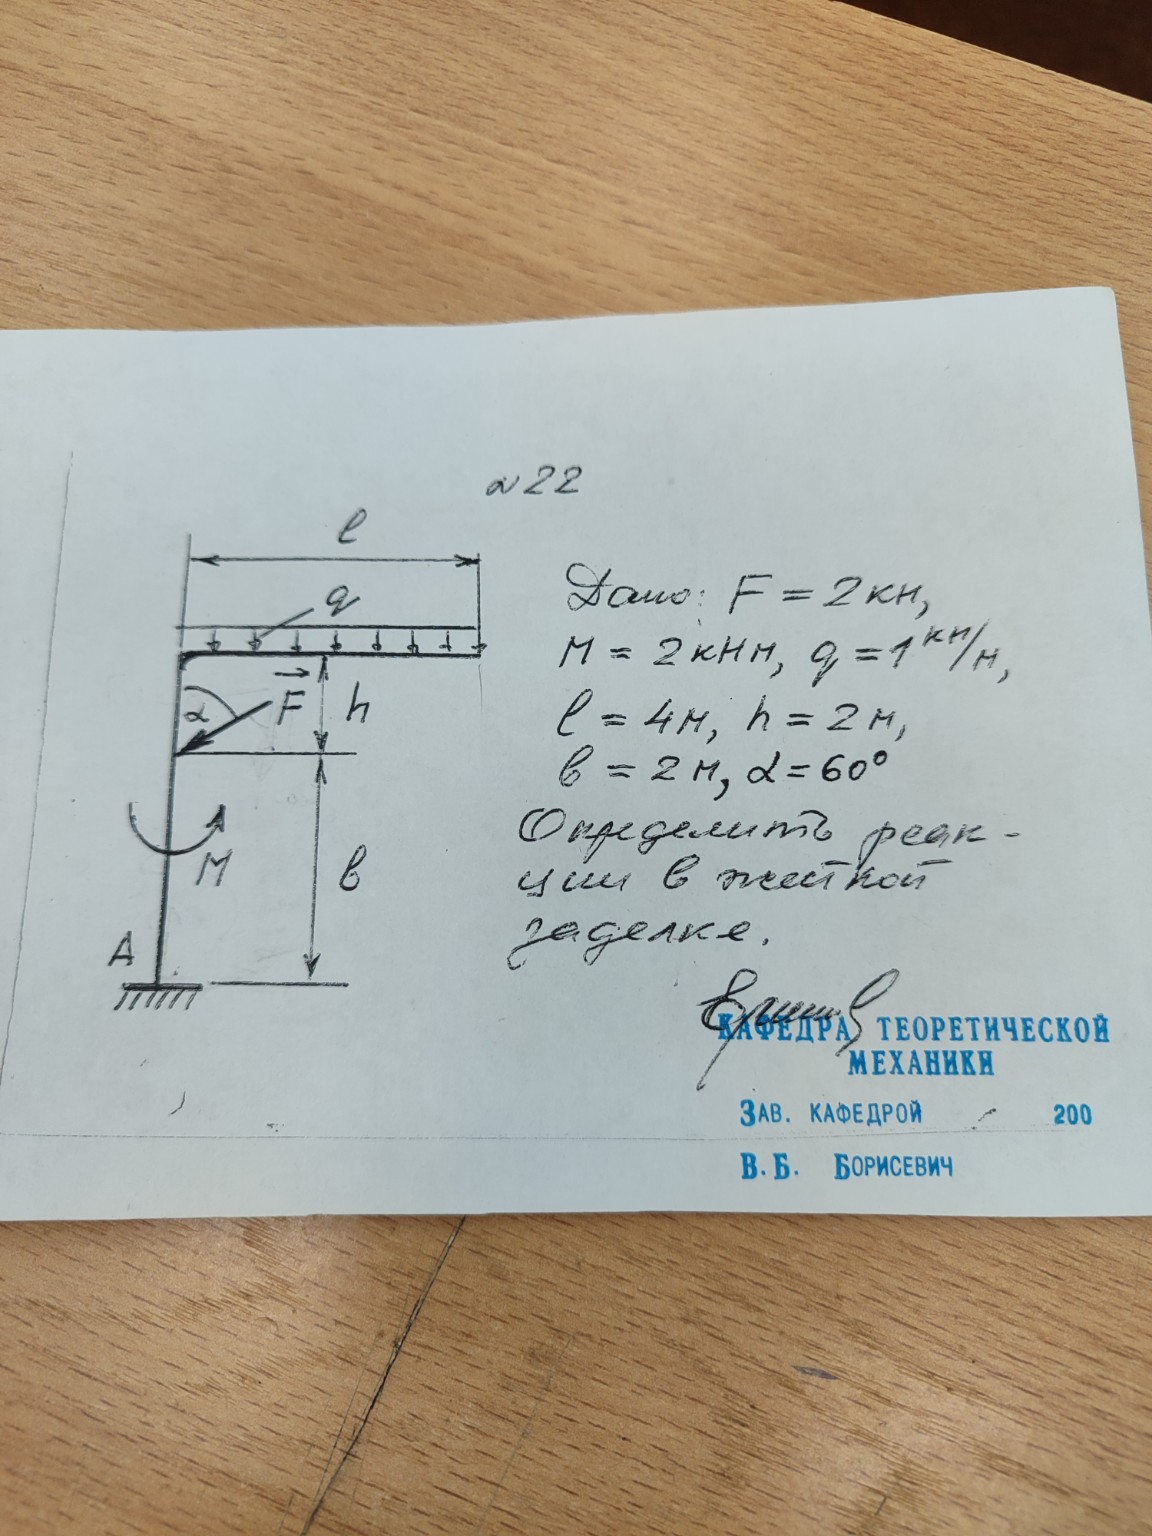 №22
l
q
Дано: F = 2кн,
M = 2кНм, q = 1кн/м,
α
F
h
l = 4м, h = 2м,
в = 2м, α = 60°
M
в
Определить реак-
ции в жесткой
заделке.
A
КАФЕДРА ТЕОРЕТИЧЕСКОЙ
МЕХАНИКИ
ЗАВ. КАФЕДРОЙ 200
В.Б. БОРИСЕВИЧ